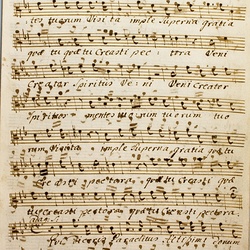 tes tuorum Visita imple Superna gratia
quæ tu quæ tu Creasti pec tora Veni
Creator Spiritus Ve ni Veni Creator
Spiritus mentes tuorum tuorum tuo
rum Visita imple Superna gratia quæ tu
Creasti pectora quæ tu Creasti
tu Creasti pectora quæ tu Creasti pectora
Qui Paraclitus Altissimi donum